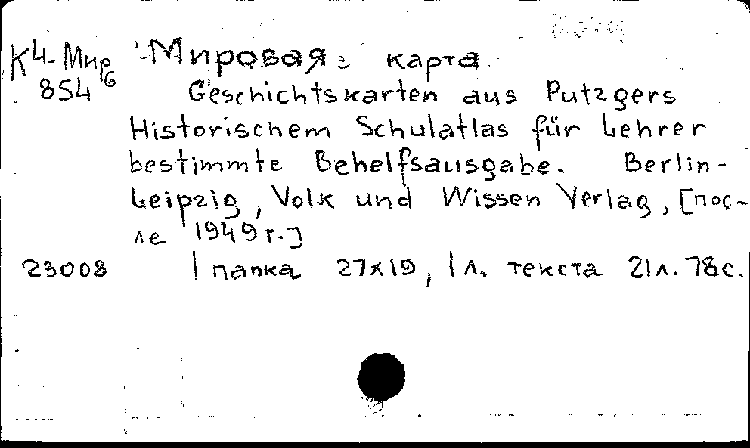 К4-Мир Мировая карта
854 6 Geschichtskarten aus Putzgers
Historischem Schulatlas für Lehrer
bestimmte Behelfsausgabe. Berlin-
Leipzig, Volk und Wissen Verlag, [пос-
ле 1949 г.]
23008 1 папка 27x19, 1 л. текста 21 л. 78с.